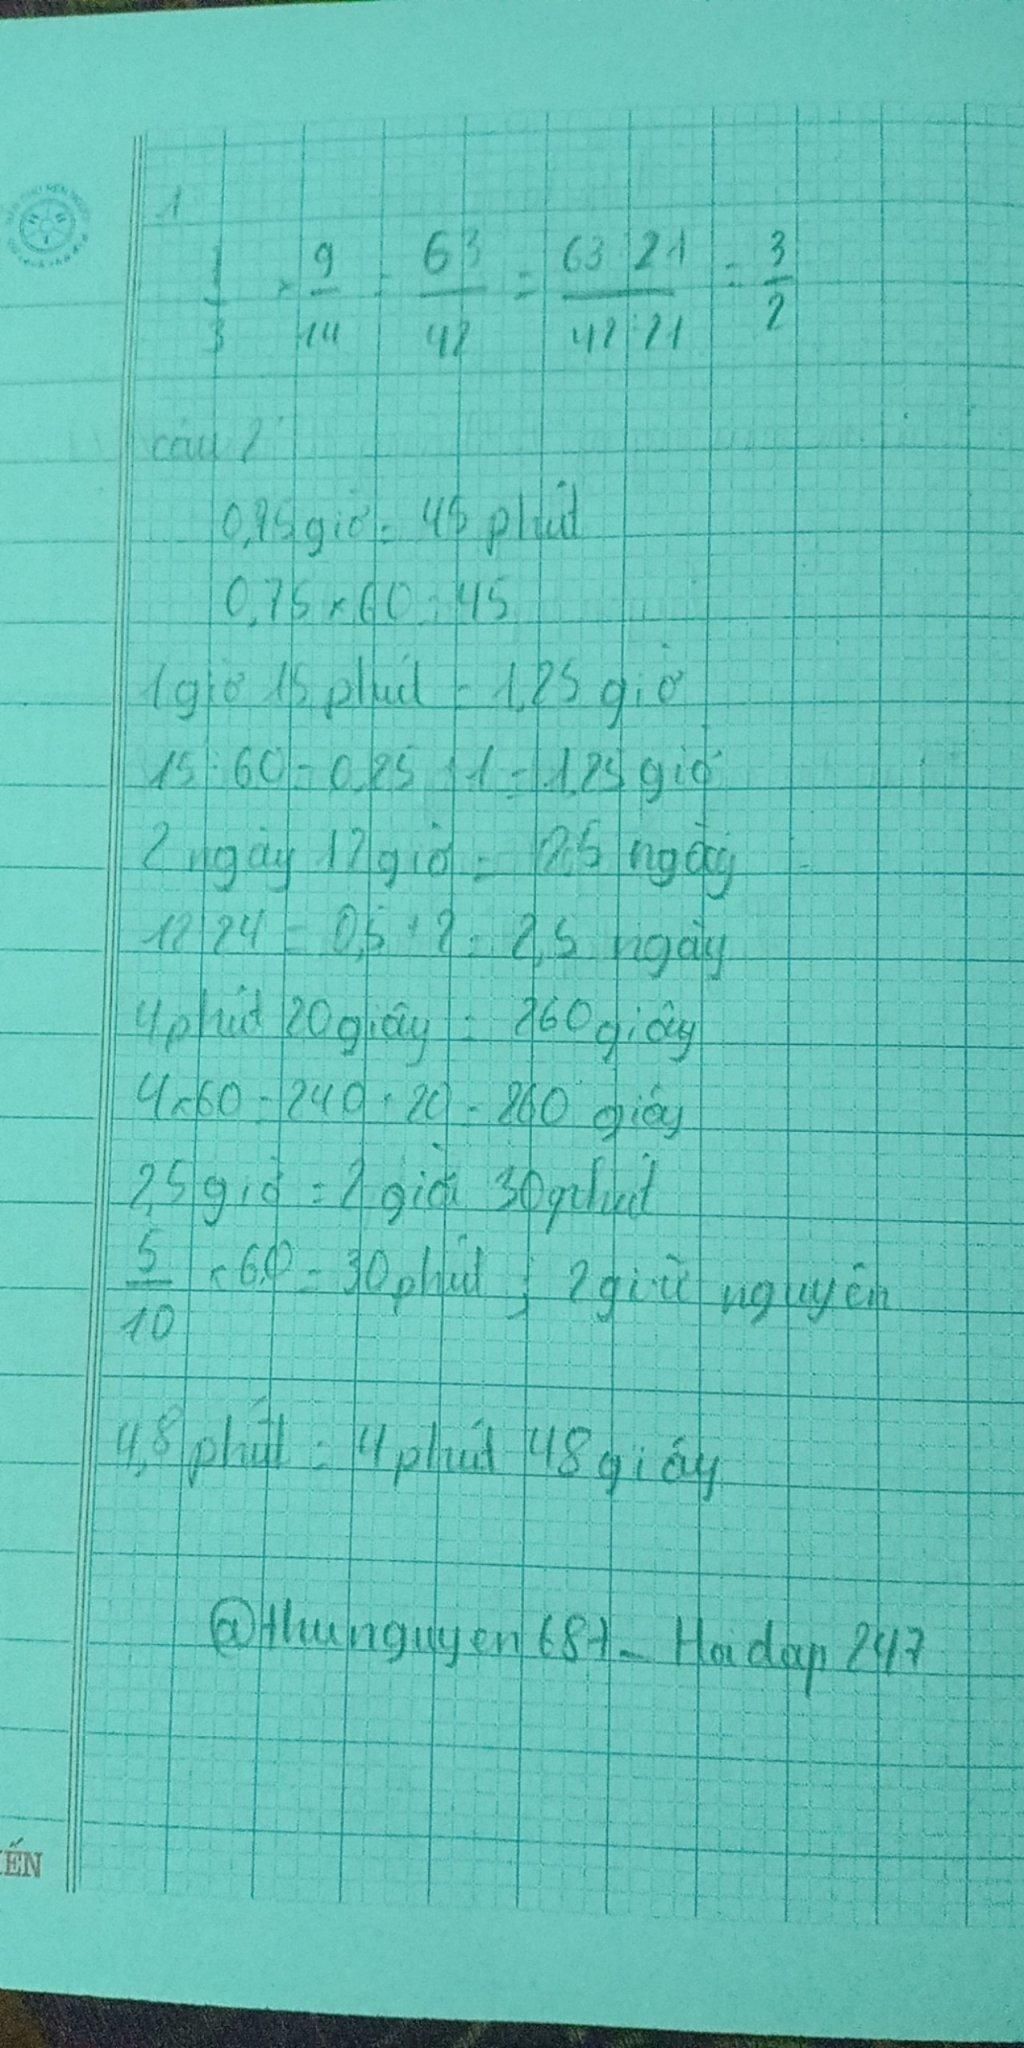 1
1/3 × 9/14 = 63/42 = 63:21/42:21 = 3/2
câu 2
0,75 giờ = 45 phút
0,75 × 60 = 45
1 giờ 15 phút = 1,25 giờ
15 : 60 = 0,25 + 1 = 1,25 giờ
2 ngày 12 giờ = 2,5 ngày
12 : 24 = 0,5 + 2 = 2,5 ngày
4 phút 20 giây = 260 giây
4 × 60 = 240 + 20 = 260 giây
2,5 giờ = 2 giờ 30 phút
5/10 × 60 = 30 phút ; 2 giữ nguyên
4,8 phút = 4 phút 48 giây
@thunguyen687_ Hoidap 247
ẾN